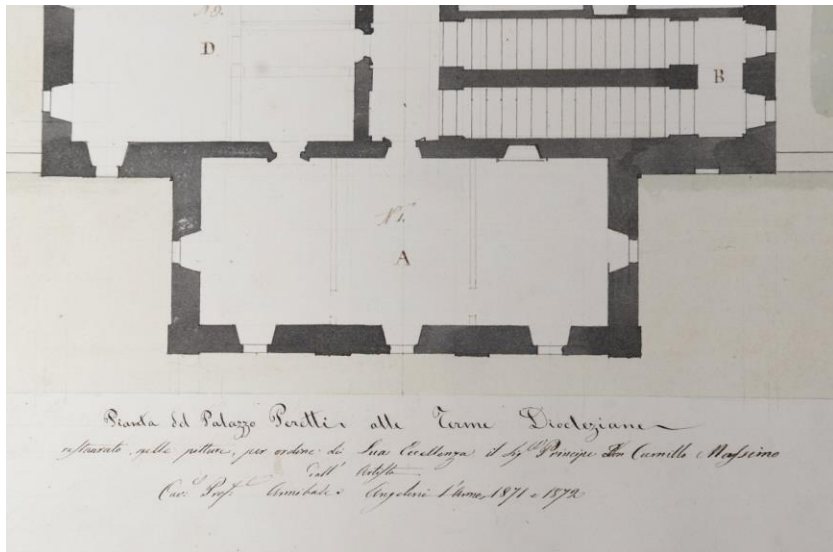 N2.
D
B
N1.
A
Pianta del Palazzo Peretti alle Terme Diocleziane
restaurato nelle pitture, per ordine di Sua Eccellenza il Sig. Principe Don Camillo Massimo
dall' Artista
Cav. Prof. Annibale Angelini l'Anno 1871 e 1872